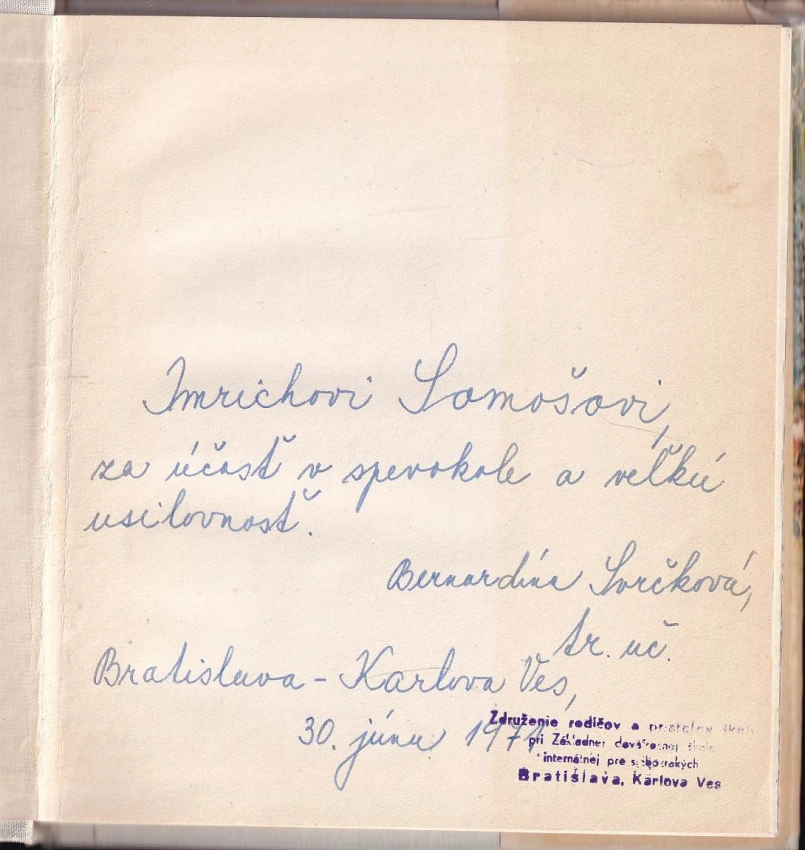 Imrichovi Somošovi,
za účasť v spevokole a veľkú
usilovnosť.
Bernardína Svrčková,
tr. uč.
Bratislava - Karlova Ves,
30. júnu 1971
Združenie rodičov a priateľov školy
pri Základnej deväťročnej škole
internátnej pre
Bratislava, Karlova Ves